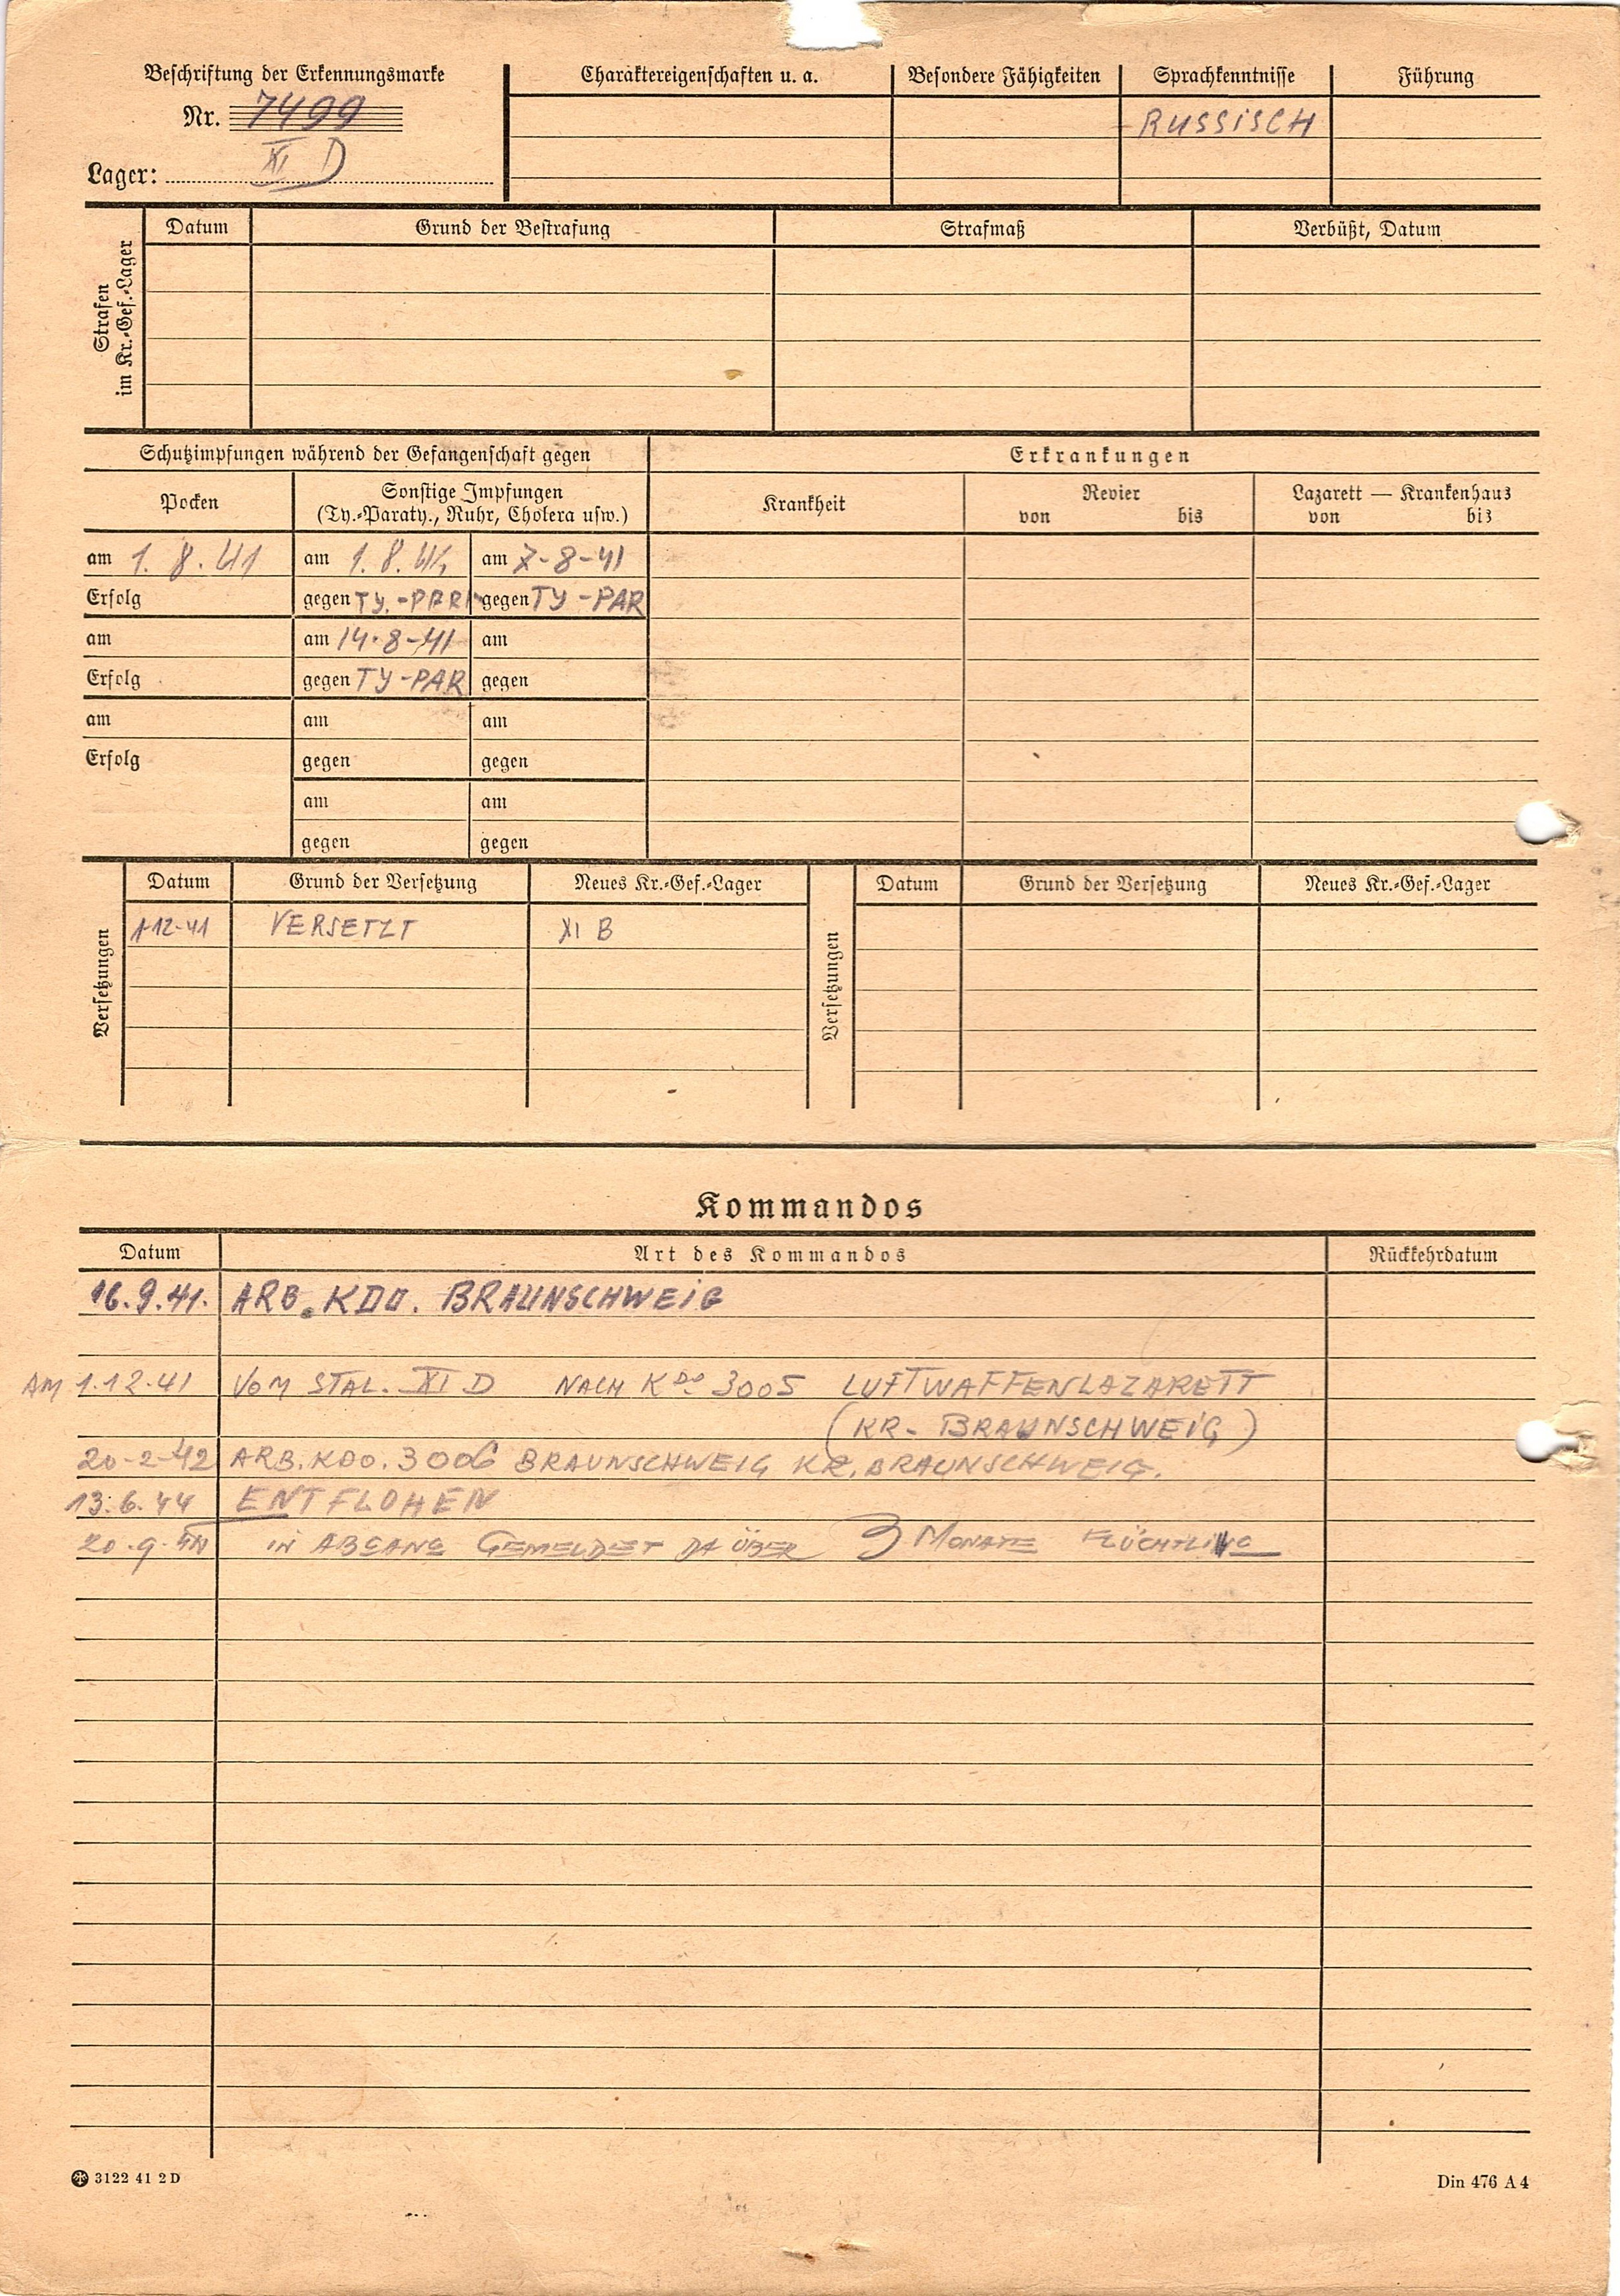 Beschriftung der Erkennungsmarke
Nr. 7499
Lager: XI D
Charaktereigenschaften u. a. Besondere Fähigkeiten Sprachkenntnisse Führung
RUSSISCH
Strafen
im Kr.-Gef.-Lager
Datum Grund der Bestrafung Strafmaß Verbüßt, Datum
Schutzimpfungen während der Gefangenschaft gegen Erkrankungen
Pocken Sonstige Impfungen
(Ty.-Paraty., Ruhr, Cholera usw.)
Krankheit Revier Lazarett — Krankenhaus
von bis von bis
am 1. 8. 41 am 1. 8. 41 am 7-8-41
Erfolg gegen TY.-PARA gegen TY-PAR
am am 14.8-41 am
Erfolg gegen TY-PAR gegen
am am am
Erfolg gegen gegen
am am
gegen gegen
Versetzungen Datum Grund der Versetzung Neues Kr.-Gef.-Lager Versetzungen Datum Grund der Versetzung Neues Kr.-Gef.-Lager
1-12-41 VERSETZT XI B
Kommandos
Datum Art des Kommandos Rückkehrdatum
16.9.41. ARB. KDO. BRAUNSCHWEIG
AM 1.12.41 VOM STAL. XI D NACH KDO 3005 LUFTWAFFENLAZARETT
(KR- BRAUNSCHWEIG)
20-2-42 ARB. KDO. 3006 BRAUNSCHWEIG KR. BRAUNSCHWEIG.
13.6.44 ENTFLOHEN
20.9.44 IN ABGANG GEMELDET DA ÜBER 3 MONATE FLÜCHTLING
3122 41 2 D
Din 476 A 4